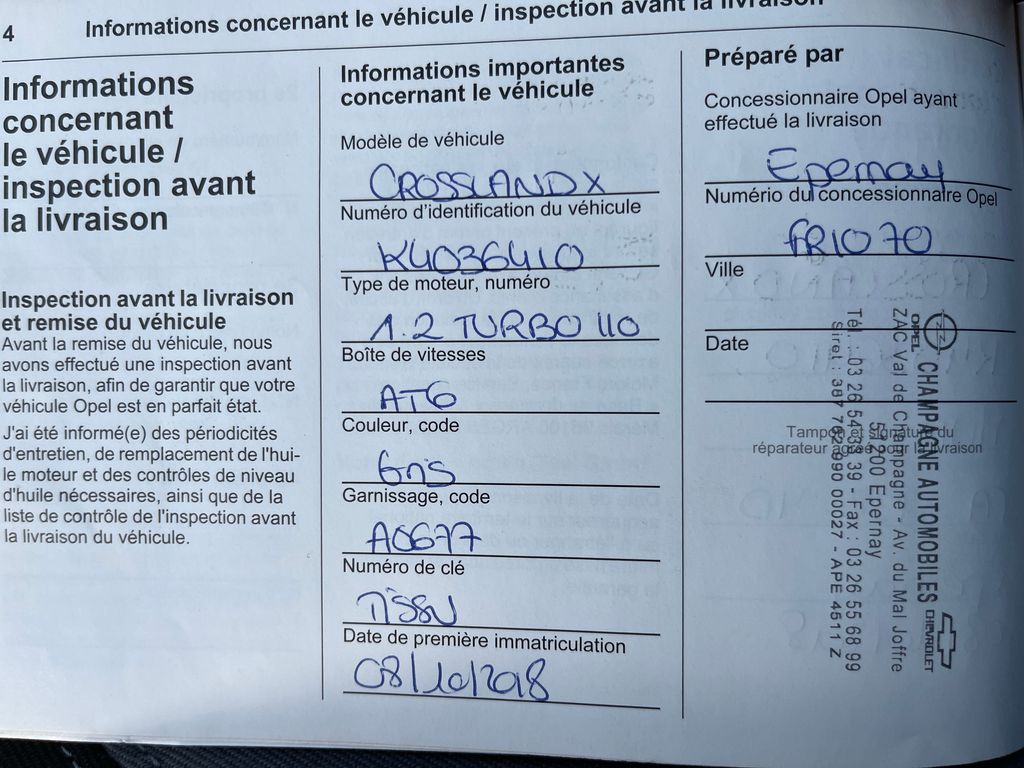 4
Informations concernant le véhicule / inspection avant la livraison
Informations
concernant
le véhicule /
inspection avant
la livraison
Inspection avant la livraison
et remise du véhicule
Avant la remise du véhicule, nous
avons effectué une inspection avant
la livraison, afin de garantir que votre
véhicule Opel est en parfait état.
J'ai été informé(e) des périodicités
d'entretien, de remplacement de l'hui-
le moteur et des contrôles de niveau
d'huile nécessaires, ainsi que de la
liste de contrôle de l'inspection avant
la livraison du véhicule.
Informations importantes
concernant le véhicule
Modèle de véhicule
CROSSLAND X
Numéro d'identification du véhicule
K4036410
Type de moteur, numéro
1.2 TURBO 110
Boîte de vitesses
AT6
Couleur, code
Gris
Garnissage, code
A0677
Numéro de clé
TISSU
Date de première immatriculation
08/10/2018
Préparé par
Concessionnaire Opel ayant
effectué la livraison
Epernay
Numério du concessionnaire Opel
FR1070
Ville
Date
Tampon et signature du
réparateur agréé pour la livraison
OPEL
CHAMPAGNE AUTOMOBILES
CHEVROLET
ZAC Val de Champagne - Av. du Mal Joffre
51200 Epernay
Tél. : 03 26 54 39 39 - Fax : 03 26 55 68 99
Siret : 387 762 990 00027 - APE 4511 Z